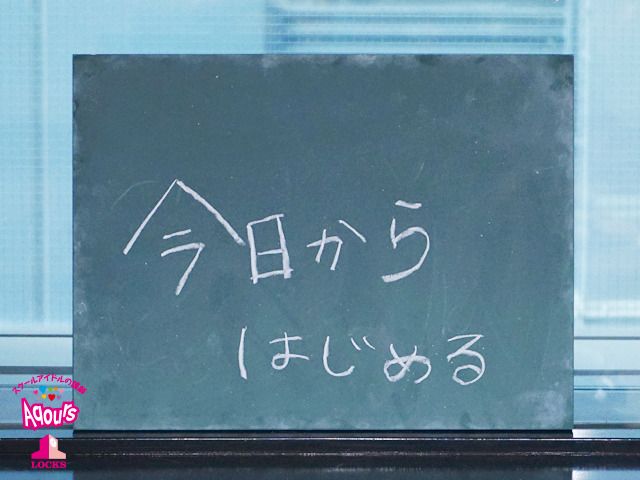 今日から
はじめる
スクールアイドルの講師
Aqours
LOCKS